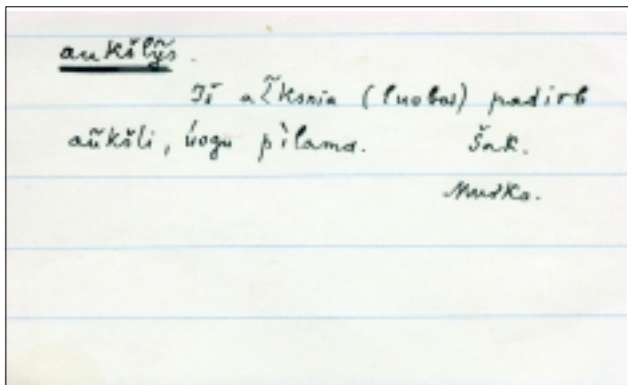 aukšlỹs.
Iš al̃ksnia (luobas) padirb
aũkšli, úogu pìlama. Šak.